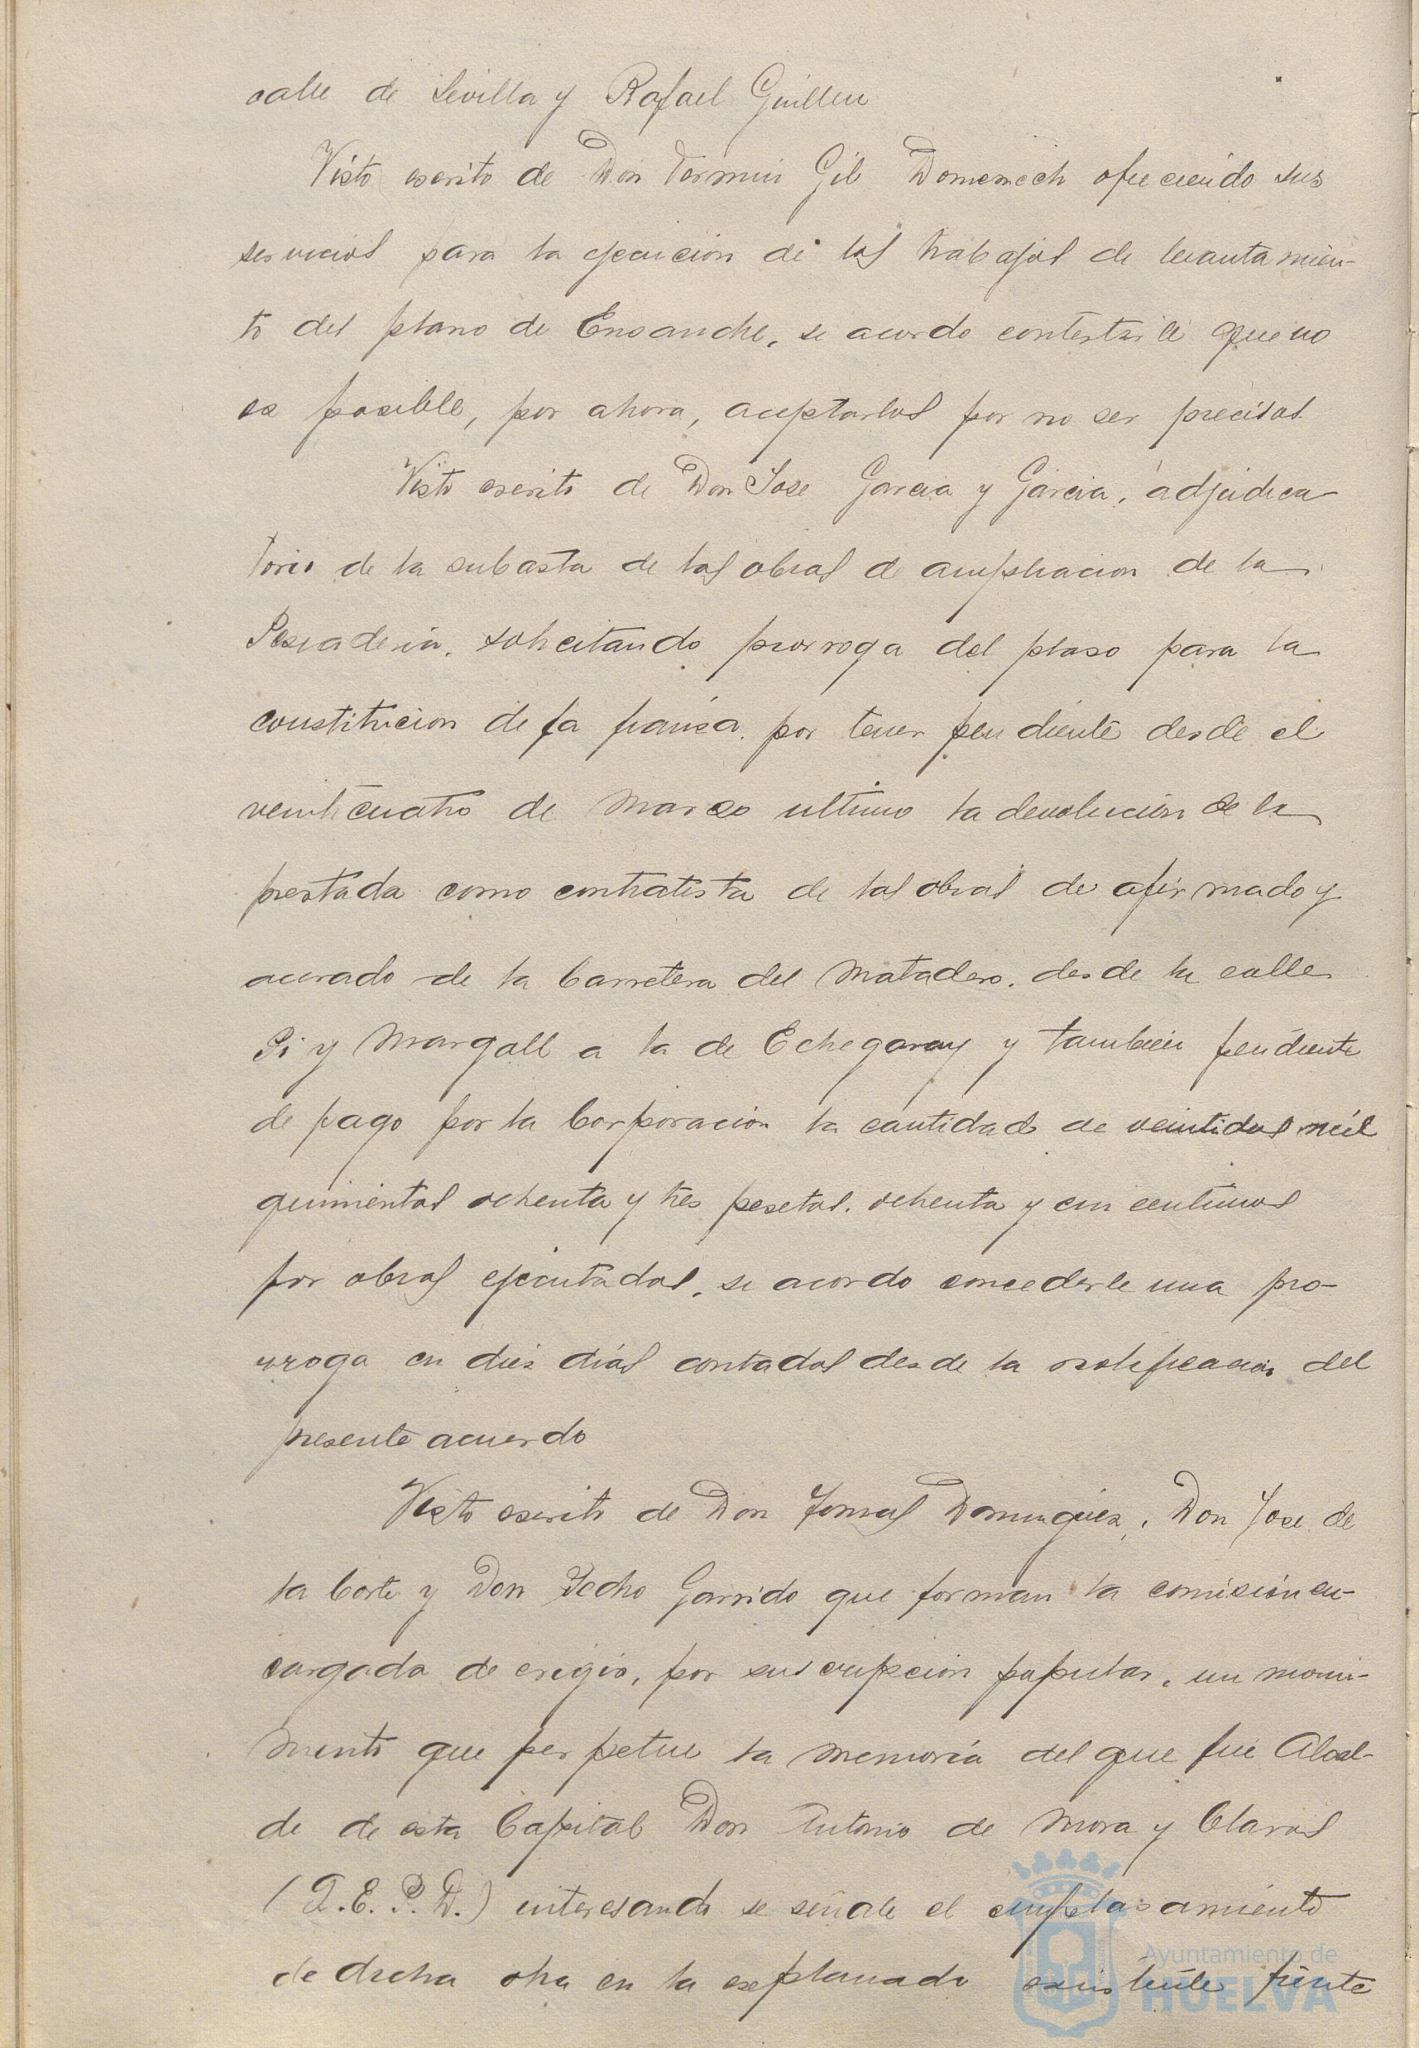 calle de Sevilla y Rafael Guillen
Visto escrito de Don Fermin Gil Domenech ofreciendo sus
servicios para la ejecucion de los trabajos de levantamien-
to del plano de Ensanche, se acordo contestarle que no
es posible, por ahora, aceptarlos por no ser precisos
Visto escrito de Don Jose Garcia y Garcia, adjudica-
torio de la subasta de las obras de ampliacion de la
Pescaderia, solicitando prorroga del plaso para la
constitucion de la fiansa, por tener pendiente desde el
veinticuatro de Marzo ultimo la devolucion de la
prestada como contratista de las obras de afirmado y
acerado de la Carretera del Matadero, desde la calle
Pi y Margall a la de Echegaray y tambien pendiente
de pago por la Corporacion la cantidad de veintidos mil
quinientas ochenta y tres pesetas, ochenta y un centimos
por obras ejecutadas, se acordo concederle una pro-
rroga en dies dias contados desde la notificacion del
presente acuerdo
Visto escrito de Don Tomas Dominguez, Don Jose de
la Corte y Don Pedro Garrido que forman la comision en-
cargada de erigir, por suscripcion popular, un monu-
mento que perpetue la memoria del que fue Alcal-
de de esta Capital Don Antonio de Mora y Claros
(Q.E.P.D.) interesando se señale el emplazamiento
de dicha obra en la explanada existente frente
Ayuntamiento de
HUELVA